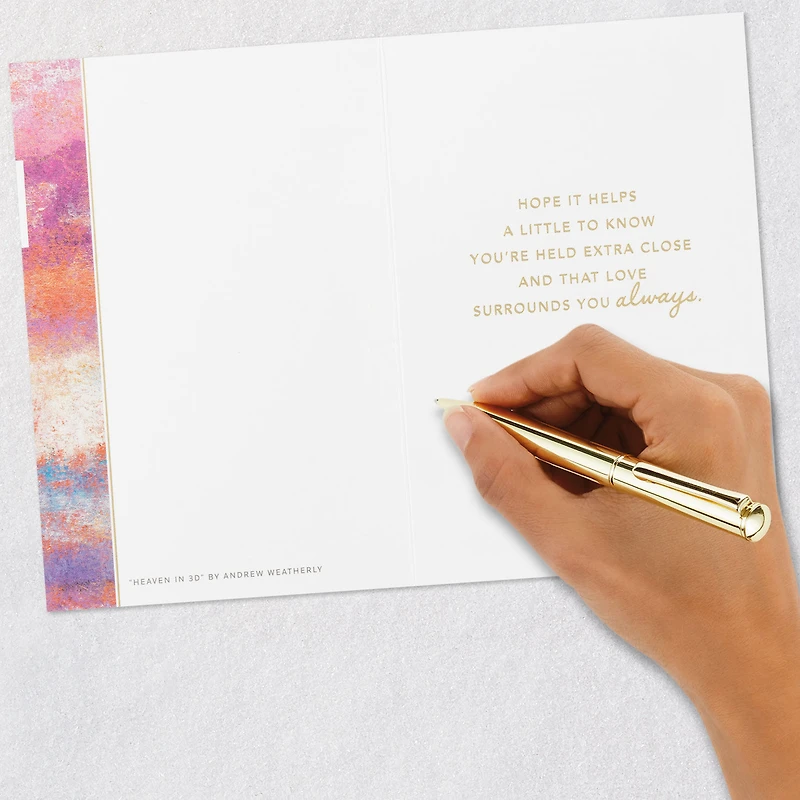 HOPE IT HELPS
A LITTLE TO KNOW
YOU'RE HELD EXTRA CLOSE
AND THAT LOVE
SURROUNDS YOU always.
"HEAVEN IN 3D" BY ANDREW WEATHERLY